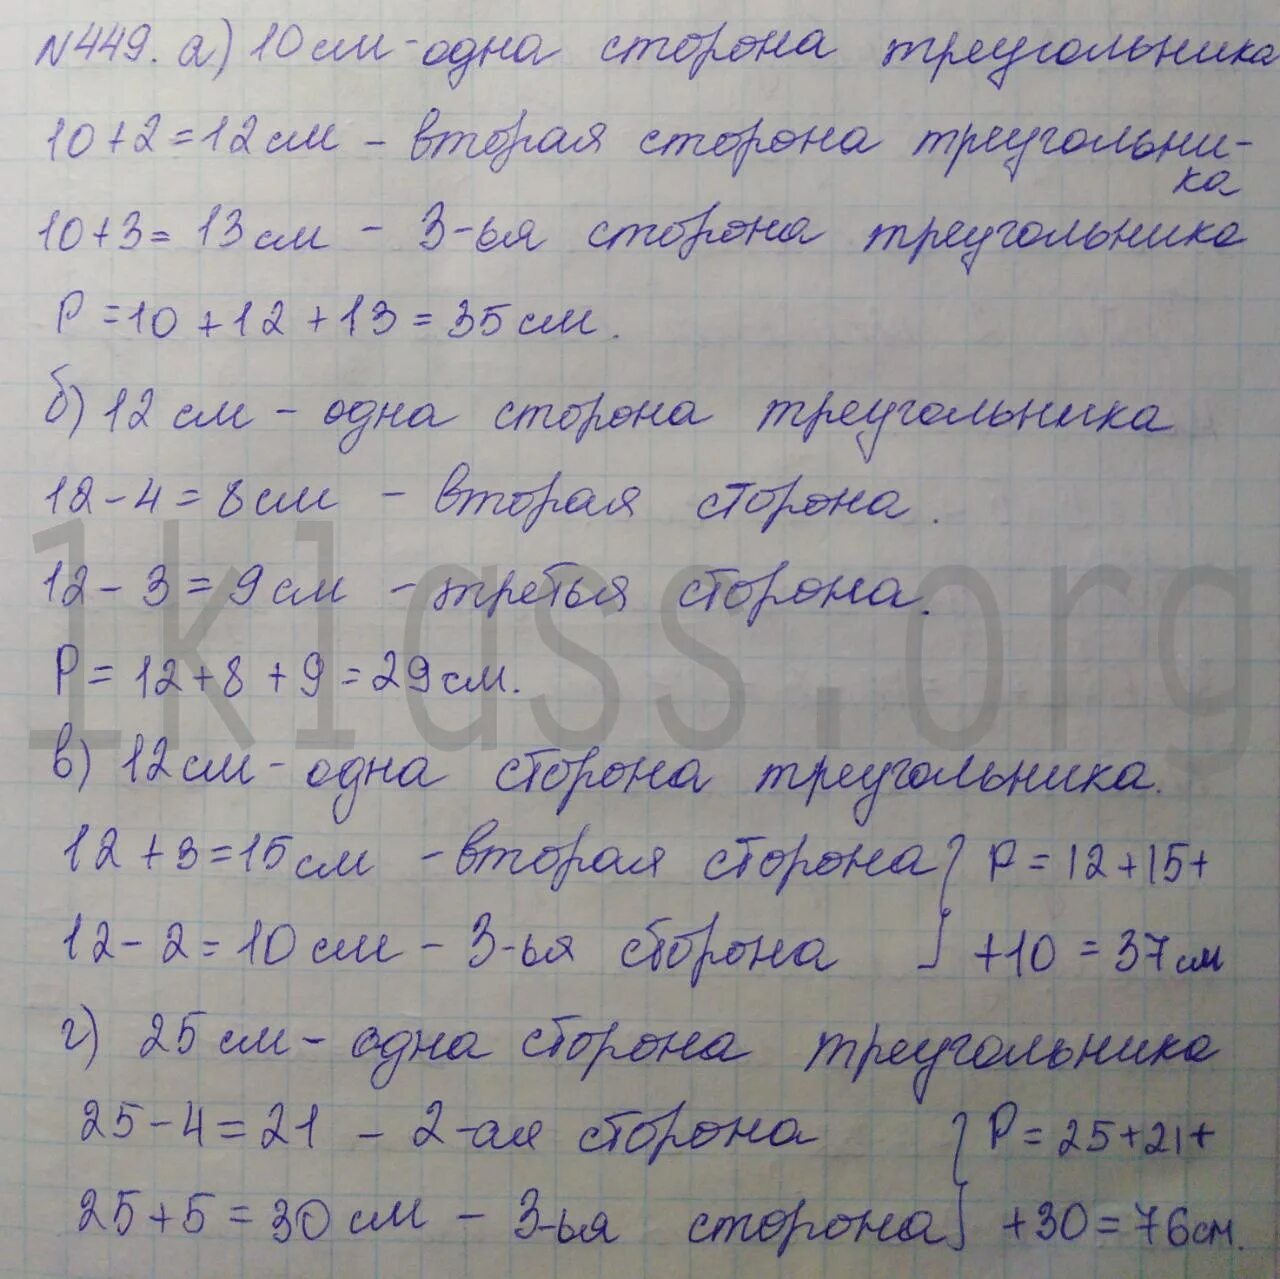 №449. а) 10 см - одна сторона треугольника
10+2=12 см - вторая сторона треугольни-
ка
10+3= 13 см - 3-ья сторона треугольника
P =10 +12 +13 = 35 см.
б) 12 см - одна сторона треугольника
12-4=8 см - вторая сторона.
12-3=9 см - третья сторона.
P= 12+8+9=29 см.
1klass.org
в) 12 см - одна сторона треугольника.
12+3=15 см - вторая сторона } P=12+15+
12-2=10 см - 3-ья сторона } +10 = 37 см
г) 25 см - одна сторона треугольника
25-4=21 - 2-ая сторона } P=25+21+
25+5=30 см - 3-ья сторона } +30=76 см.